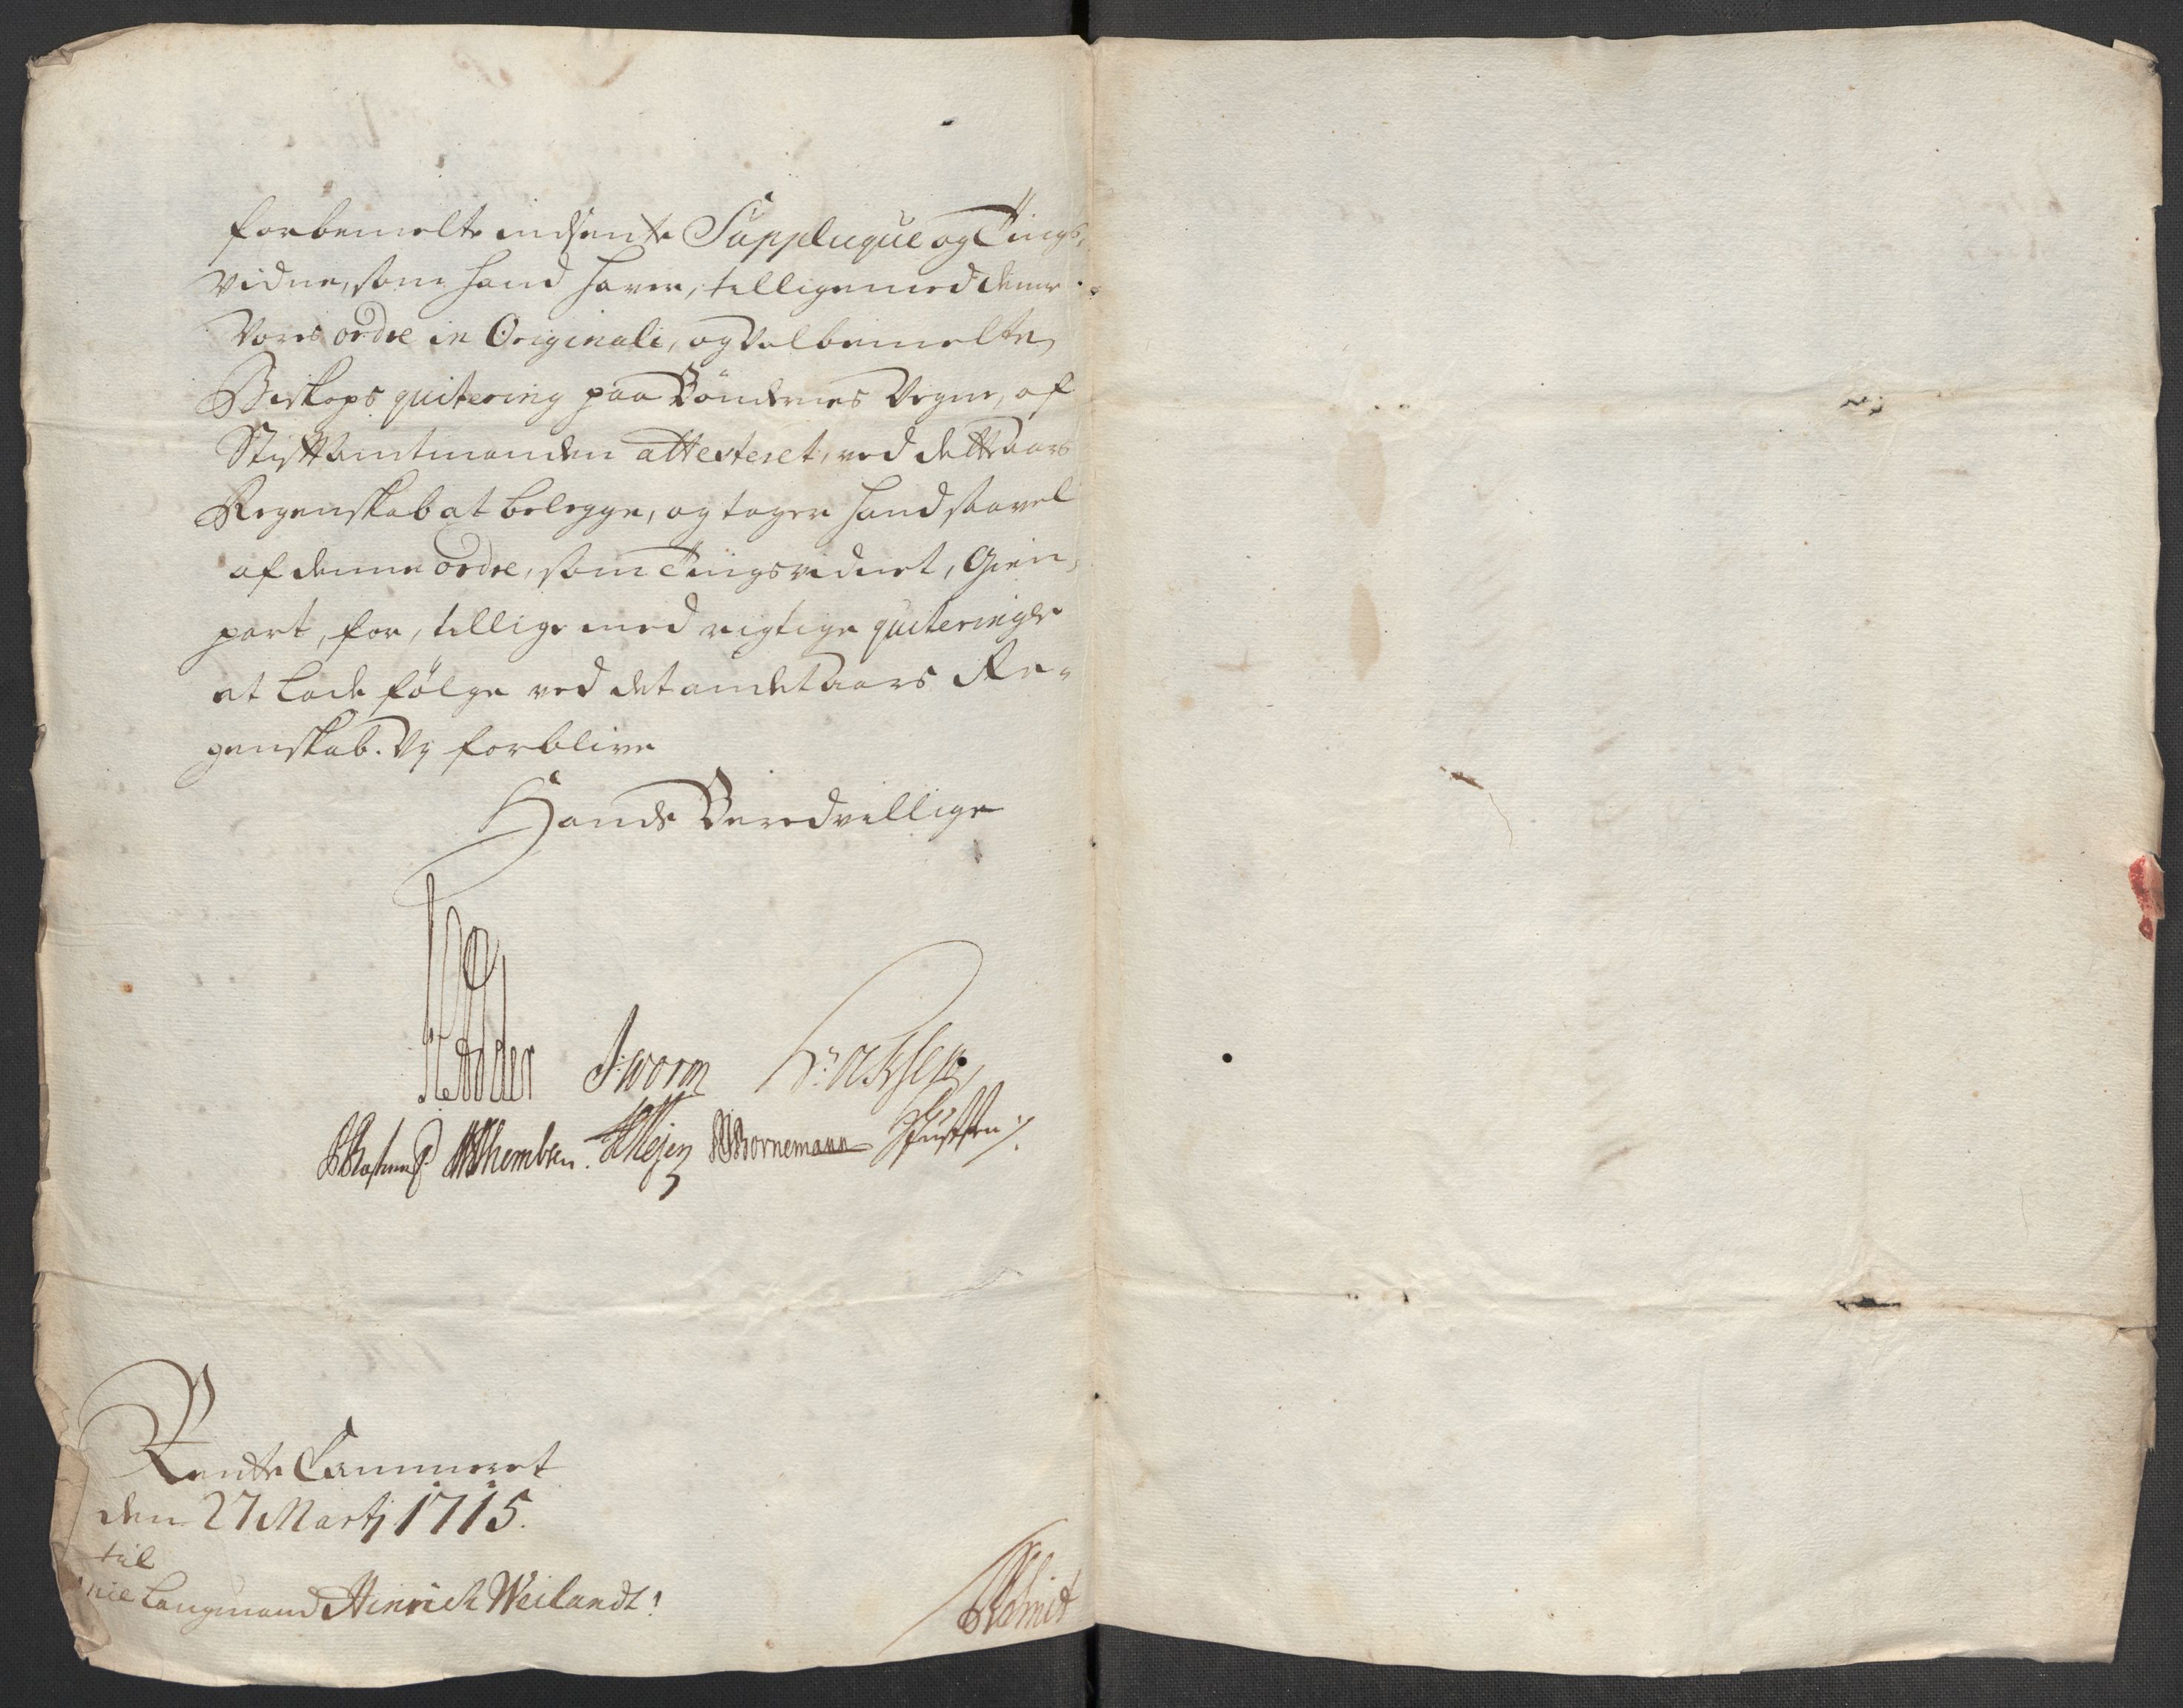 forbemelte indsente Supplique og Tings,
vidne, som hand haver, tillige med denne
Vores ordre in Originali, og Velbemelte
Biskops quitering paa Böndernes Vegne, af
Stiftamtmanden attesteret, ved dette aars
Regenskab at belegge, og tager hand saavel
af denne ordre, som Tingsvidnet, Gien,
part, for, tillige med rigtige quiteringer
at lade fölge ved det andet aars Re-
genskab. Vj forblive
Hands Beredvillige
Adeler J: Worm
Themsen. Bornemann
Rente Cammeret
den 27 Martj 1715.
til
Laugmand Hinrich Weilandt!
Schmidt